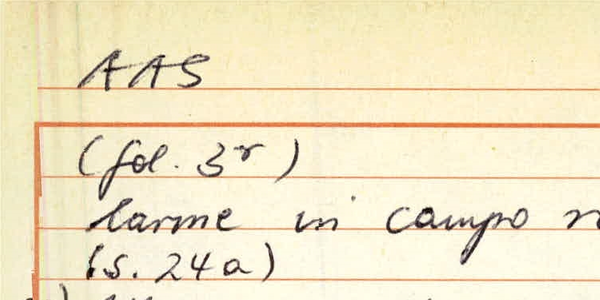 AAS
(fol. 3r)
larme in campo
(S. 24a)